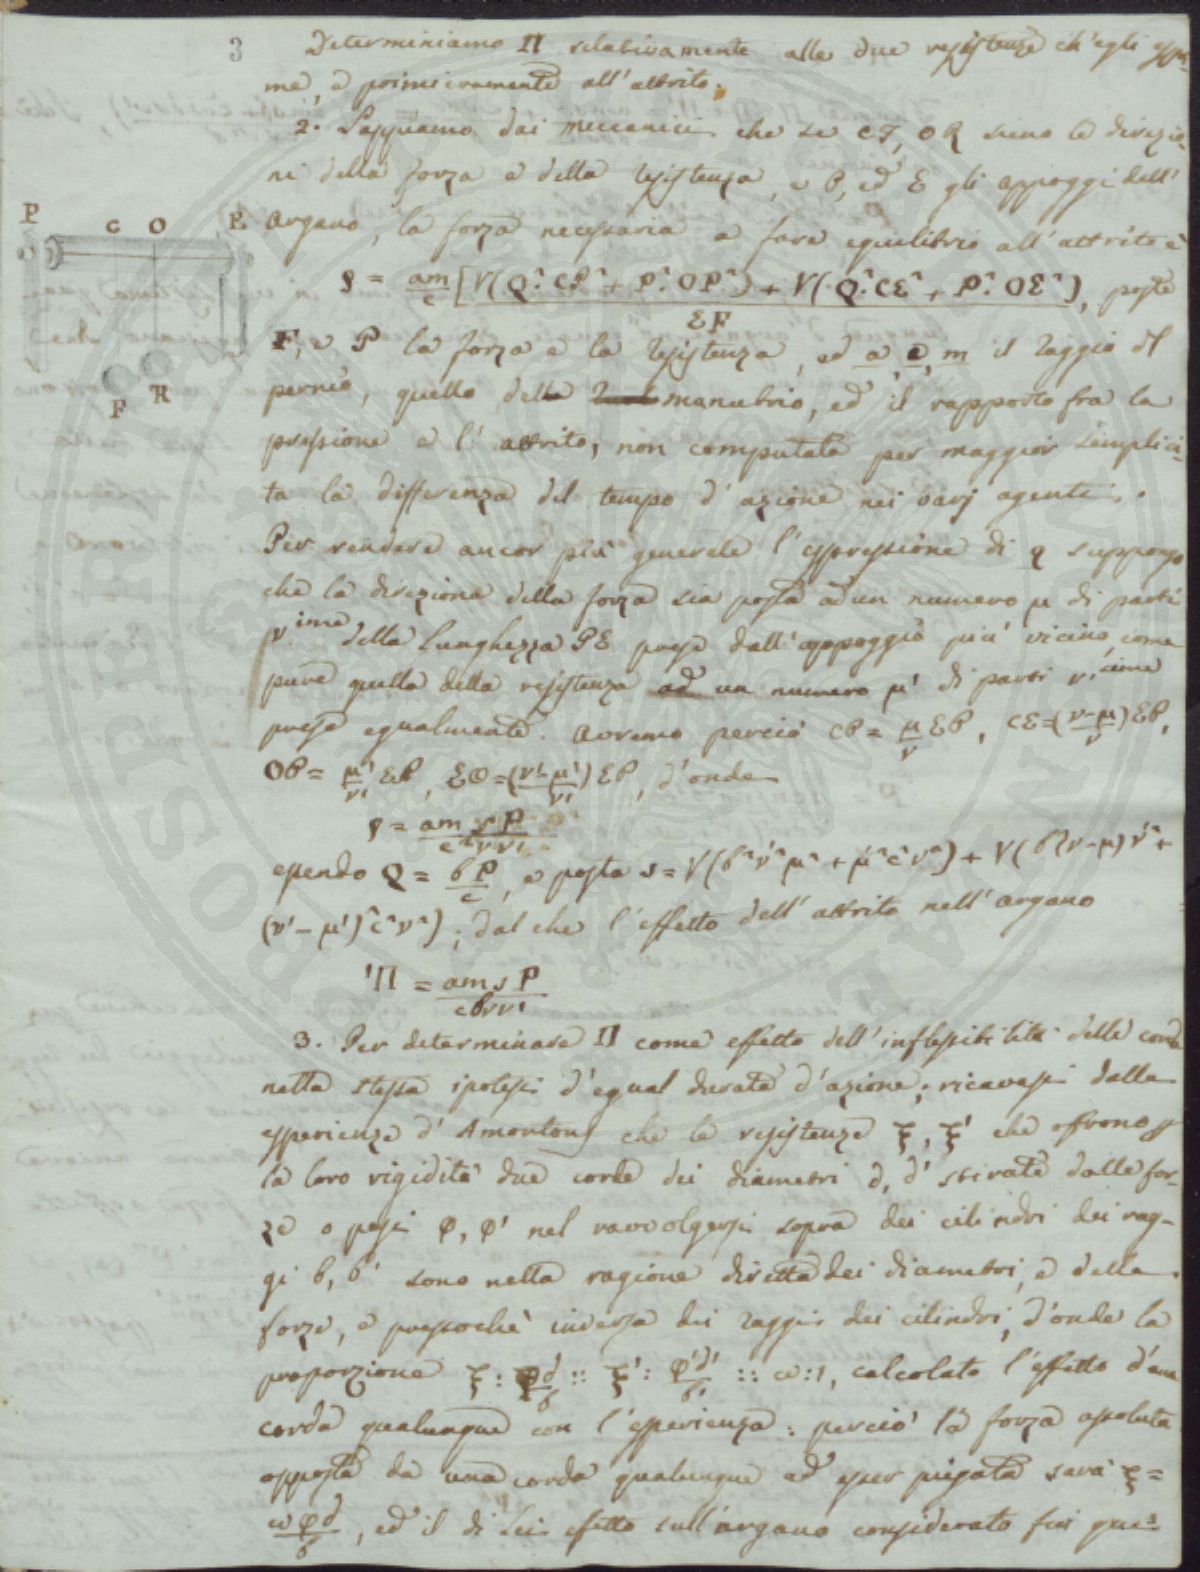 3
Determiniamo Π relativamente alle due resistenze ch'egli espri-
me, e primieramente all'attrito.
2. Sappiamo dai meccanici che se CF, OR sieno le direzio-
ni della forza e della resistenza, e P, ed E gli appoggi dell'
argano, la forza necessaria a fare equilibrio all'attrito è
P C O E
F R
q = am/c [V(Q². CP² + P². OP²) + V(Q². CE² + P². OE²)] / EP, poste
e P la forza e la resistenza, ed a, c, m il raggio del
pernio, quello del manubrio, ed il rapporto fra la
pressione e l'attrito, non computata per maggior semplici-
ta la differenza del tempo d'azione nei varj agenti.
Per rendere ancor più generale l'espressione di q suppongo
che la direzione della forza sia posta ad un numero μ di parti
ν.ime della lunghezza PE prese dall'appoggio più vicino, come
pure quella della resistenza ad un numero μ' di parti ν'.esime
prese egualmente. Avremo perciò CP = μ/ν EP, CE = (ν-μ/ν) EP,
OP = μ'/ν' EP, EO = (ν'-μ'/ν') EP, d'onde
q = am s P / c²νν'
essendo Q = bP/c, e posta s = V(b²ν'²μ² + μ'²c²ν²) + V(b²(ν-μ)²ν'² +
(ν'-μ')²c²ν²); dal che l'effetto dell'attrito nell'argano
'Π = amsP / cbνν'
3. Per determinare Π come effetto dell'inflessibilità delle corde
nella stessa ipotesi d'egual durata d'azione, ricavasi dalle
esperienze d'Amontons che le resistenze ξ, ξ' che offrono
la loro rigidità due corde dei diametri d, d' stirate dalle for-
ze o pesi φ, φ' nel ravvolgersi sopra dei cilindri dei rag-
gi b, b' sono nella ragione diretta dei diametri, e delle
forze, e pressochè inversa dei raggi dei cilindri, d'onde la
proporzione ξ : φd/b :: ξ' : φ'd'/b' :: ω:1, calcolato l'effetto d'una
corda qualunque con l'esperienza: perciò la forza assoluta
opposta da una corda qualunque ad esser piegata sarà ξ =
ωφd/b, ed il di lei effetto sull'argano considerato fin que-